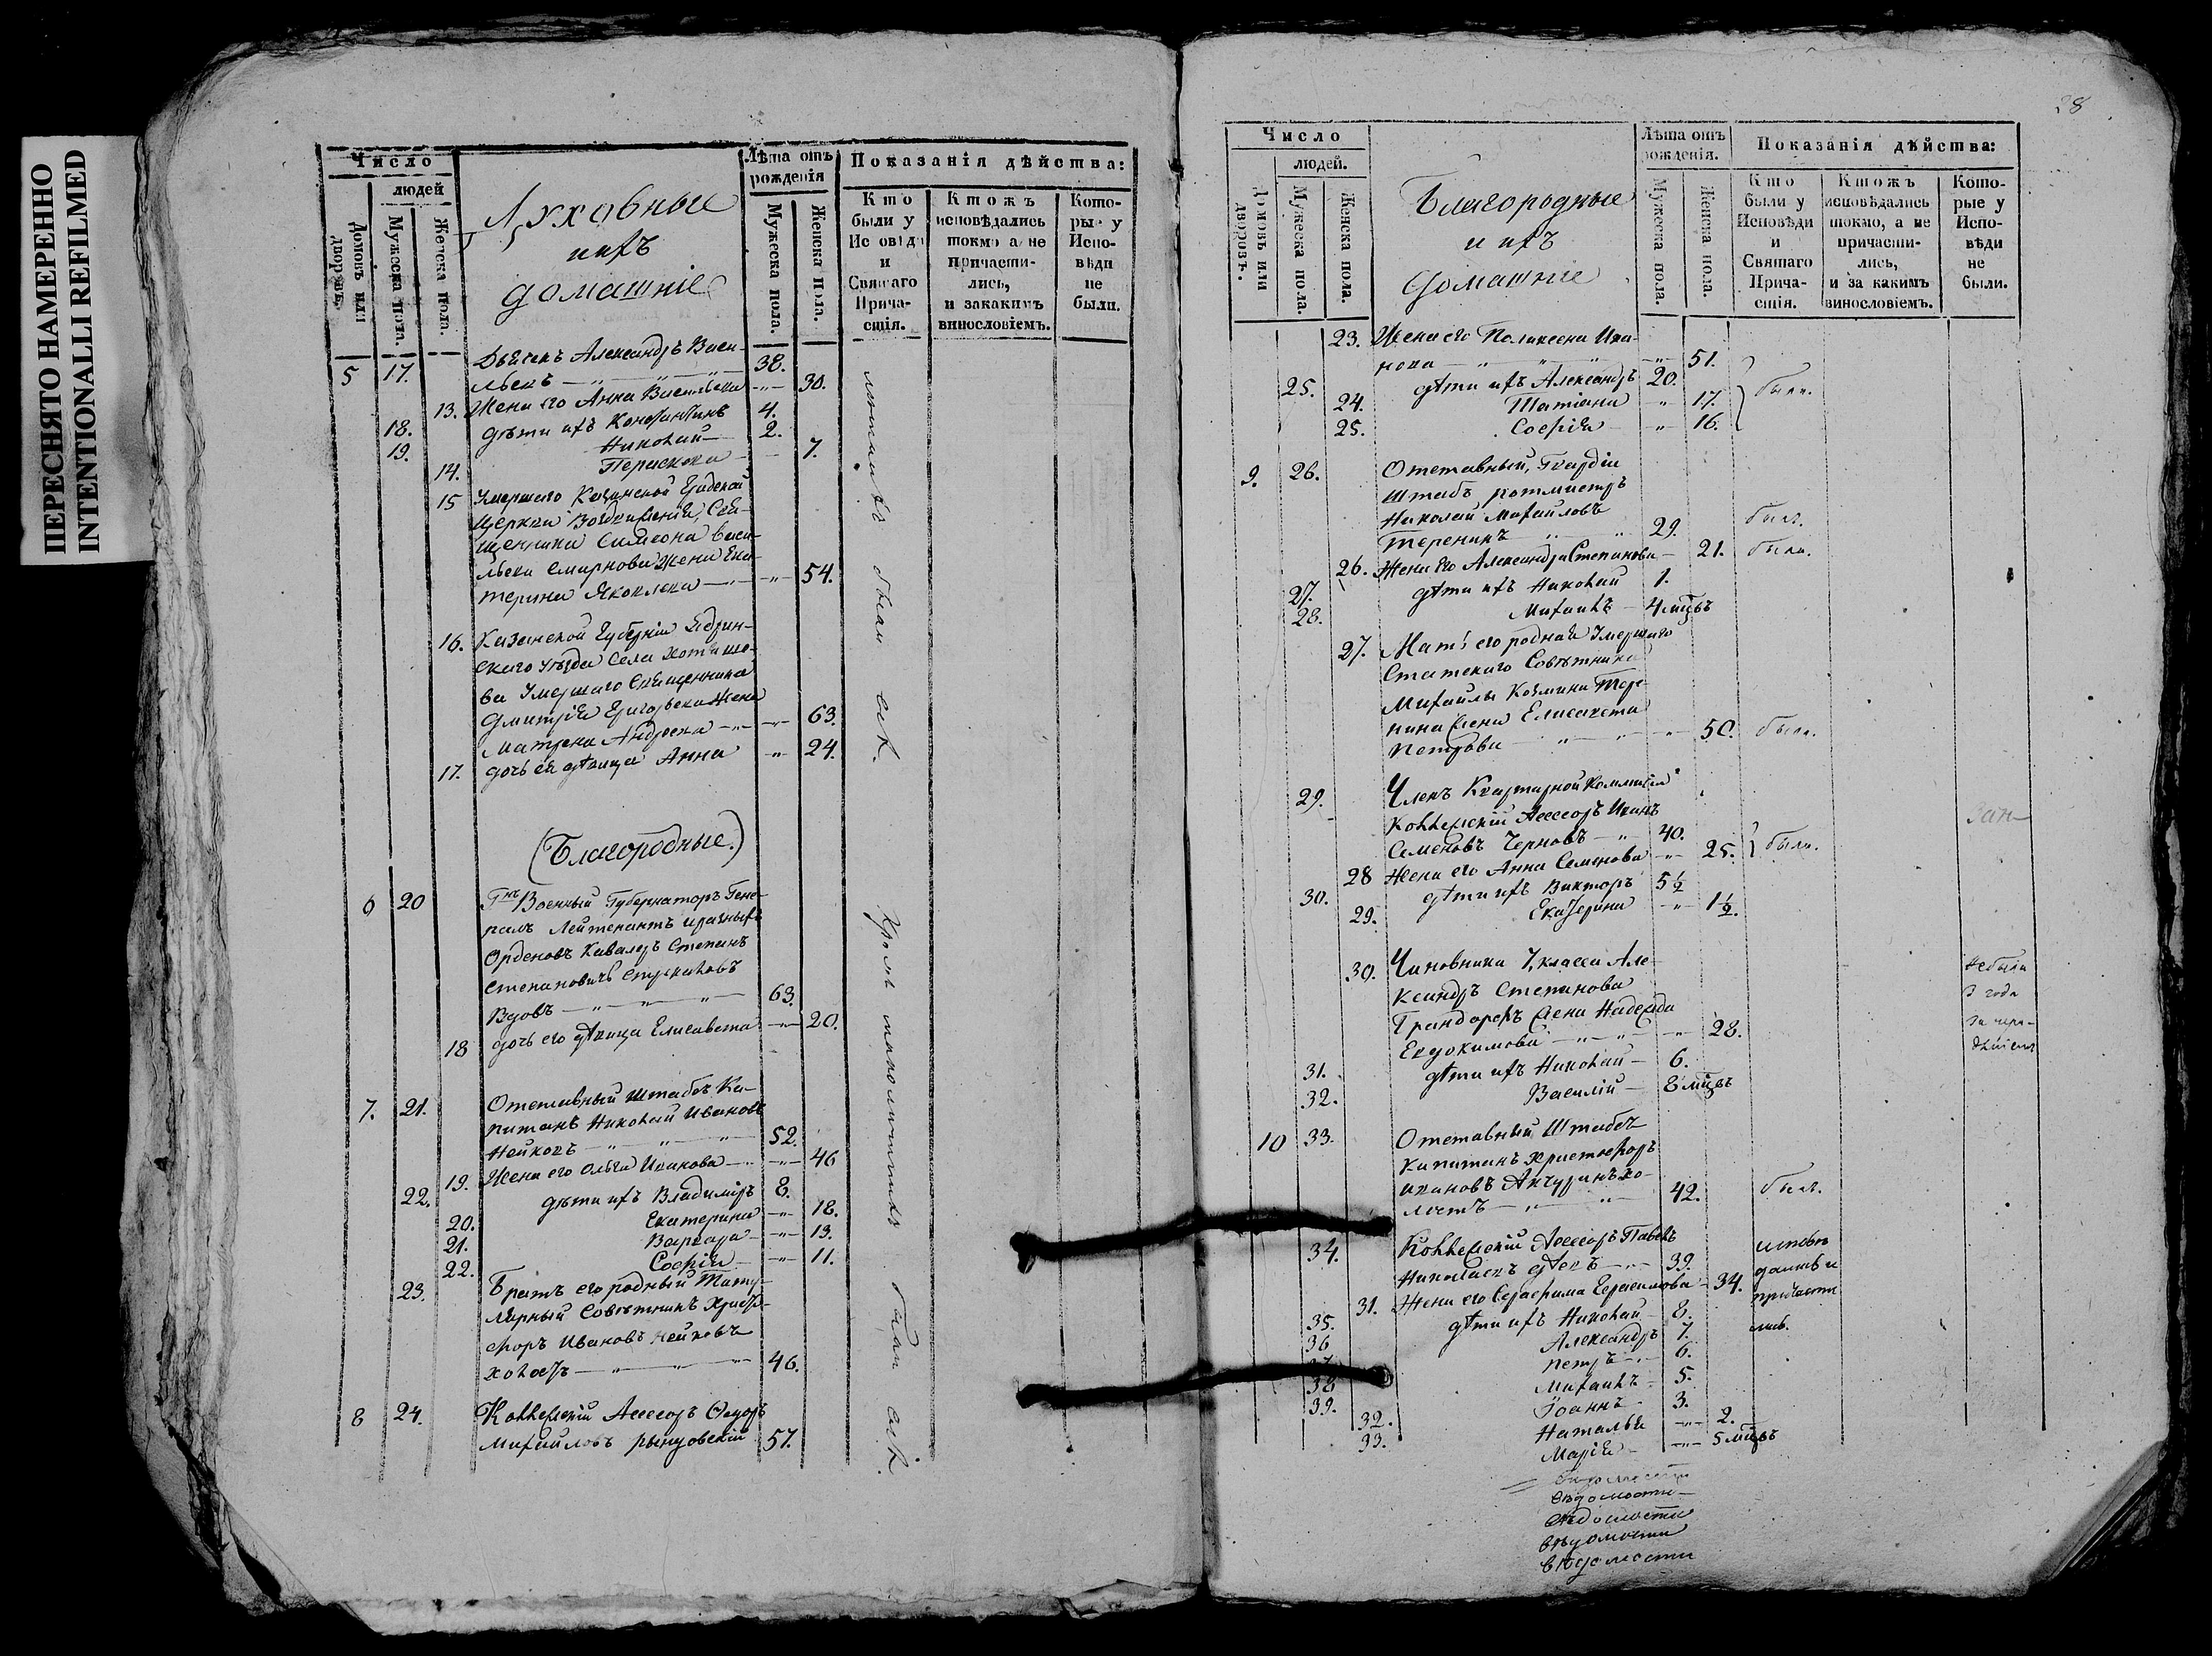 ПЕРЕСНЯТО НАМЕРЕННО
INTENTIONALLI REFILMED
Число
людей
Домовъ или дворовъ.
Мужеска пола.
Женска пола.
Духовные
ихъ
домашніе
Лѣта отъ рожденія
Мужеска пола.
Женска пола.
Показанія дѣйства:
Кто были у Исповѣди и Святаго Причастія.
Ктожъ исповѣдались токмо а не причастились, и закакимъ винословіемъ.
Которые у Исповѣди не были.
5 17. Дьячекъ Александръ Васи-
льевъ 38.
13. Жена его Анна Васильева 30.
18. дѣти ихъ Константинъ 4.
19. Николай 2.
14. Параскева 7.
15 Умершаго Казанской Градской
Церкви Воздвиженія, Свя-
щенника Симеона Васи-
льева Смирнова Жена Ека-
терина Яковлева 54.
16. Казанской Губерніи Ядрин-
скаго уѣзда Села
ва Умершаго Священника
Дмитрія Григорьева Жена
Матрена Андреева 63.
17. дочь ея дѣвица Анна 24.
были всѣ.
(Благородные.)
6 20 Гнъ Военный Губернаторъ Гене-
ралъ Лейтенантъ и разныхъ
Орденовъ Кавалеръ Степанъ
Степановичъ Стрекаловъ
Вдовъ 63.
18 дочь его дѣвица Елисавета 20.
7. 21. Отставный Штабсъ Ка-
питанъ Николай Ивановъ
Нейковъ 52.
19. Жена его Ольга Иванова 46
22. дѣти ихъ Владимiръ 8.
20. Екатерина 18.
21. Варвара 13.
22. Софiя 11.
23. Братъ его родный Титу-
лярный Совѣтникъ Христо-
форъ Ивановъ Нейковъ
холостъ 46.
8 24. Коллежскій Ассесоръ Ѳедоръ
Михайловъ 57.
Кромѣ малолѣтныхъ были всѣ.
28
Число
людей.
Домовъ или дворовъ.
Мужеска пола.
Женска пола.
Благородные
и ихъ
домашніе
Лѣта отъ рожденія.
Мужеска пола.
Женска пола.
Показанія дѣйства:
Кто были у Исповѣди и Святаго Причастія.
Ктожъ исповѣдались токмо, а не причастились, и за какимъ винословіемъ.
Которые у Исповѣди не были.
23. Жена его Поликсена Ива-
нова 51.
25. дѣти ихъ Александръ 20. были.
24. Татіана 17.
25. Софія 16.
9. 26. Отставный, Гвардіи
Штабъ ротмистръ
Николай Михайловъ
Теренинъ 29. былъ.
26. Жена Его Александра Степанова 21. была.
27. дѣти ихъ Николай 1.
28. Михаилъ 4 мцвъ
27. Мать его родная Умершаго
Статскаго Совѣтника
Михайлы Козмина Тере-
нина Жена Елисавета
Петрова 50. была.
29. Членъ Квартирной Коммисіи
Коллежскій Ассесоръ Иванъ
Семеновъ Черновъ 40.
28 Жена его Анна Семенова 25. были.
30. дѣти ихъ Викторъ 5½
29. Екатерина 1½.
30. Чиновника 7, класса Але-
ксандръ Степанова
Жена Надежда
Евдокимова 28.
не была
3 года
31. дѣти ихъ Николай 6.
32. Василій 8 мцвъ
10 33. Отставный Штабсъ
Капитанъ Христофоръ
Ивановъ Акчуринъ хо-
лостъ 42. былъ.
34. Коллежскій Ассесоръ Павелъ
Николаевъ 39.
31. Жена его Серафима Герасимова 34.
исповѣ
дались и
причасти
лись.
35. дѣти ихъ Николай 8.
36 Александръ 7.
37 Петръ 6.
38 Михаилъ 5.
39. Іоаннъ 3.
32. Наталья 2.
33. Марія 5 мцвъ
вѣдомости
вѣдомости
вѣдомости
вѣдомости